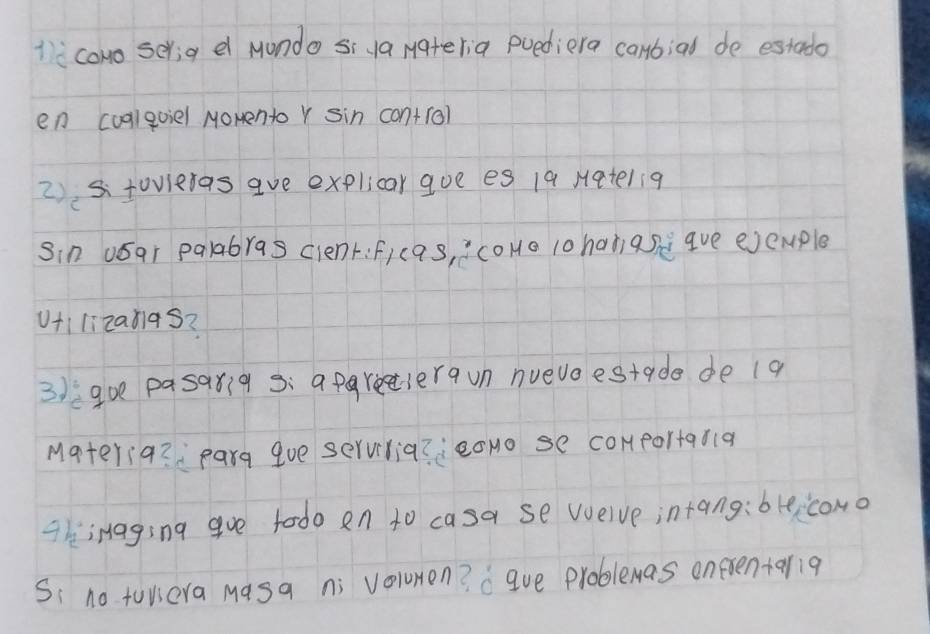 1)¿ como seria el mundo si la materia puediera cambial de estado
en cualquiel momento y sin control
2)¿ si tuvieras que explicar que es la materia
sin usar palabras cientificas, ¿como lo harias¿ que ejemplo
utilizarias?
3)¿ que pasaria si apareciera un nuevo estado de la
materia?¿ para que serviria?¿ como se comportaria
4)¿ imagina que todo en tu casa se vuelve intangible,¿como
si no tuviera masa ni volumen?¿ que problemas enfrentaria